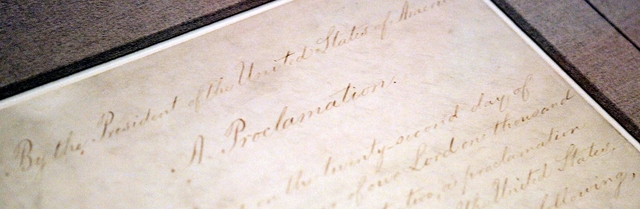 By the President of the United States of Americ
A Proclamation.
on the twenty-second day of
of our Lord one thousand
two, a proclamation
the United States
following,